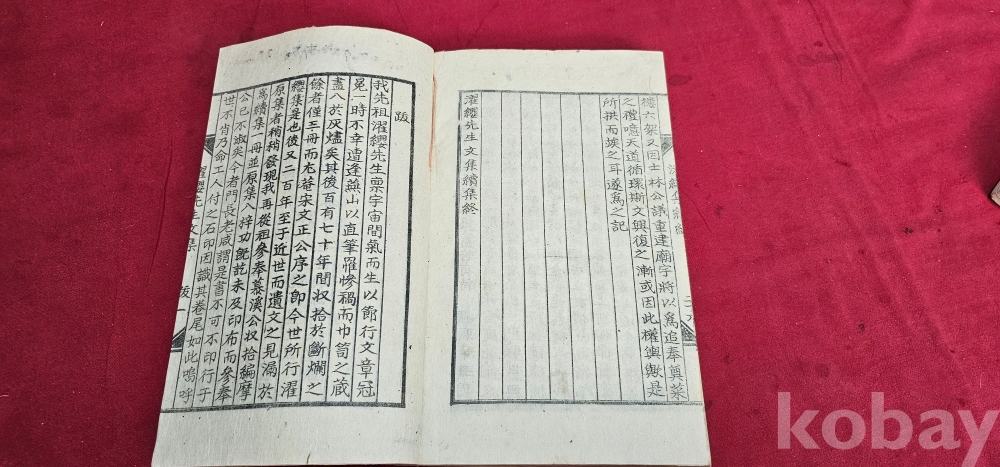 樓六架又因士林公議重建廟宇將以爲追奉奠菜
之禮噫天道循環斯文興復之漸或因此權輿歟是
所拱而俟之耳遂爲之記
濯纓先生文集續集終
跋
我先祖濯纓先生禀宇宙間氣而生以節行文章冠
冕一時不幸遭逢燕山以直筆罹慘禍而巾笥之蔵
盡入於灰燼矣其後百有七十年間収拾於斷爛之
餘者僅三冊而尤菴宋文正公序之卽今世所行濯
纓集是也後又二百年至于近世而遺文之見漏於
原集者稍稍發現我再從祖參奉慕溪公収拾編摩
爲續集一冊並原集入梓功旣訖未及印布而參奉
公已不淑矣今者門長老咸謂是書不可不印行于
世不肯乃命工人付之石印因識其卷尾如此嗚呼
濯纓先生文集
跋
一
kobay